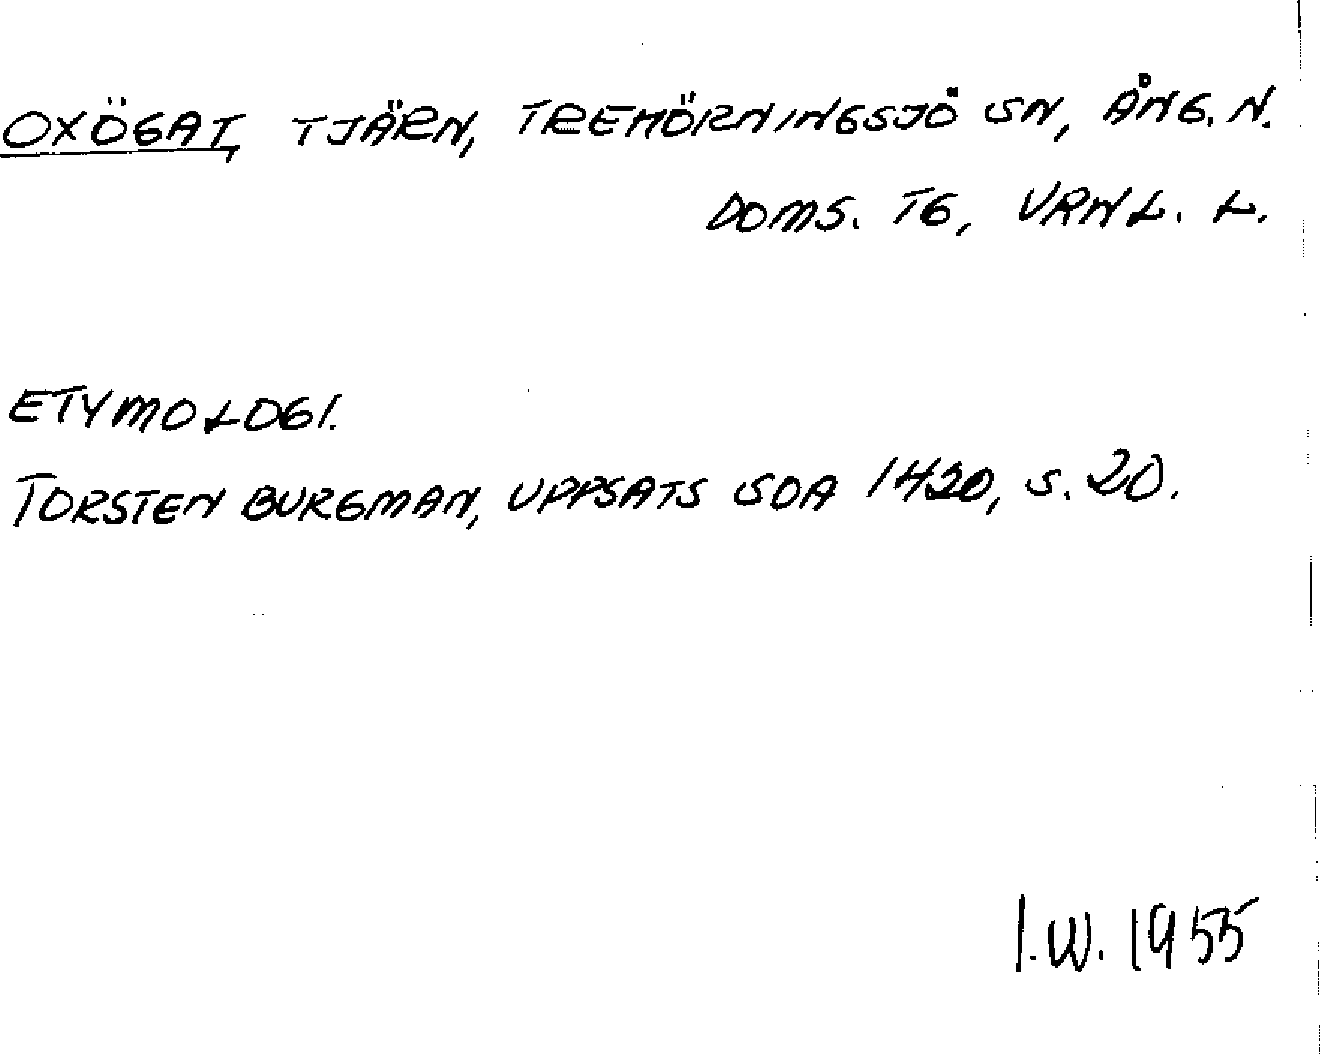 OXÖGAT, TJÄRN, TREHÖRNINGSJÖ SN, ÅNG. N.
DOMS. TG, VRNL. L.
ETYMOLOGI.
TORSTEN BURGMAN, UPPSATS SOA 1420, S. 20.
I.W. 1955